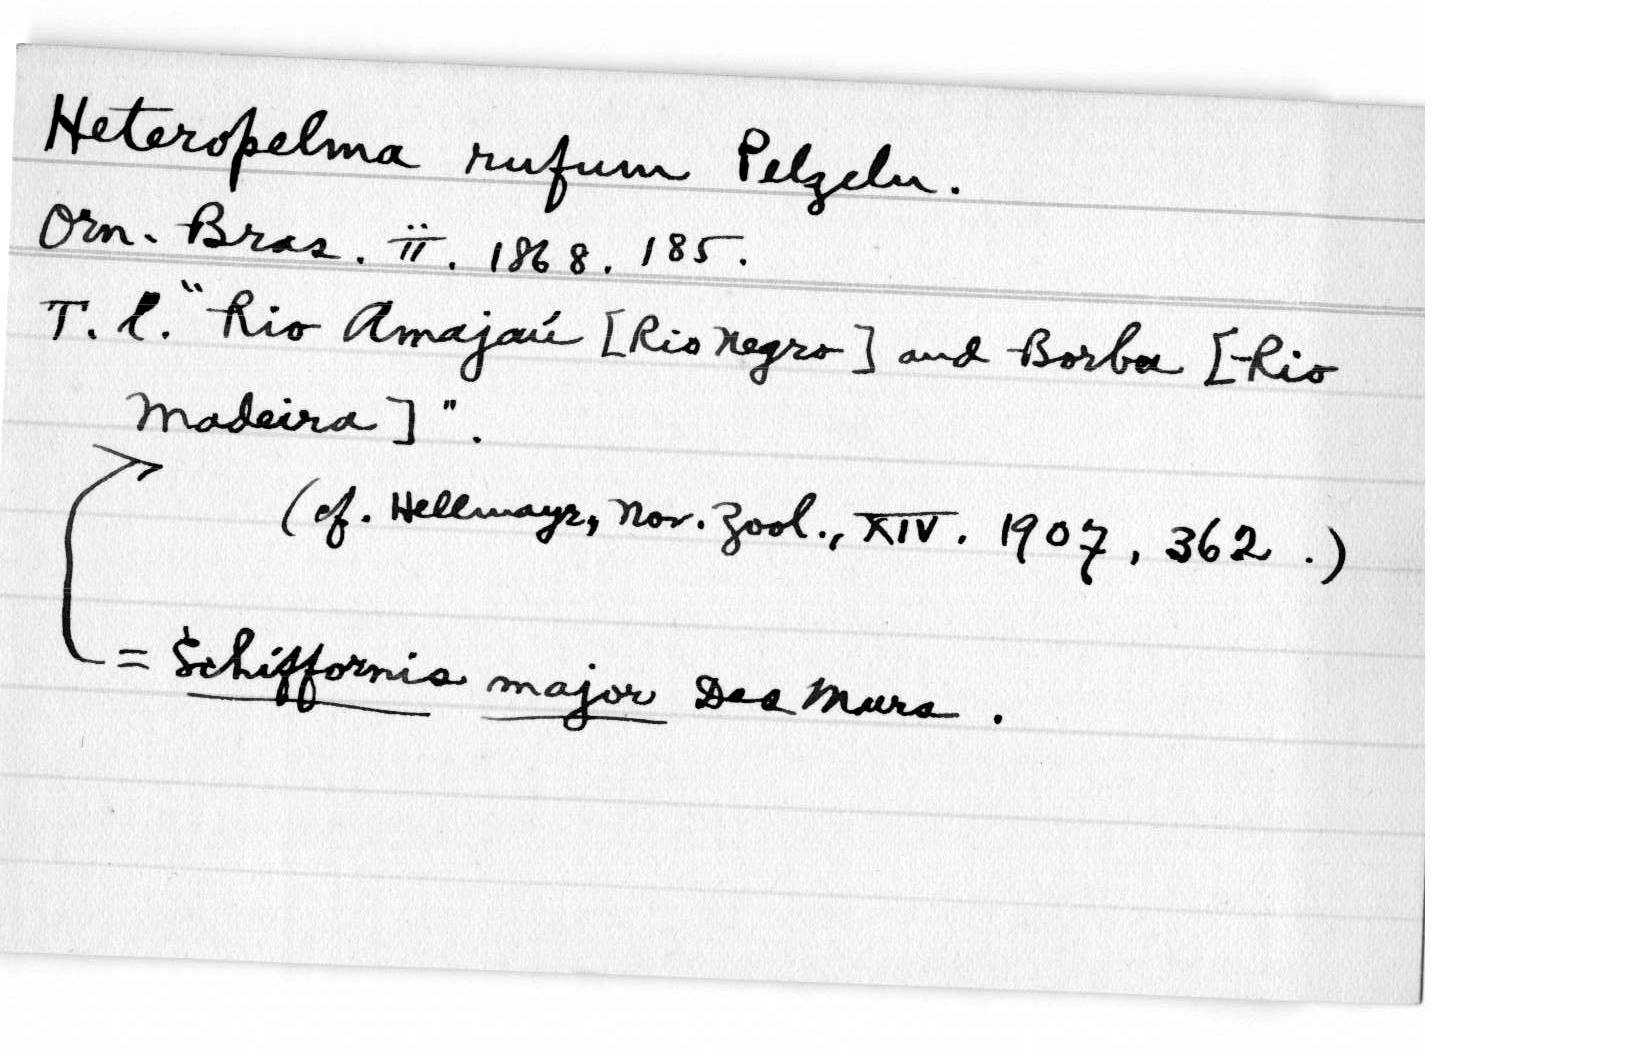 Heteropelma rufum Pelzeln.
Orn. Bras. ii. 1868. 185.
T. l. "Rio Amajaú [Rio Negro] and Borba [Rio
Madeira]".
(cf. Hellmayr, Nov. Zool., XIV. 1907, 362.)
= Schiffornis major Des Murs.